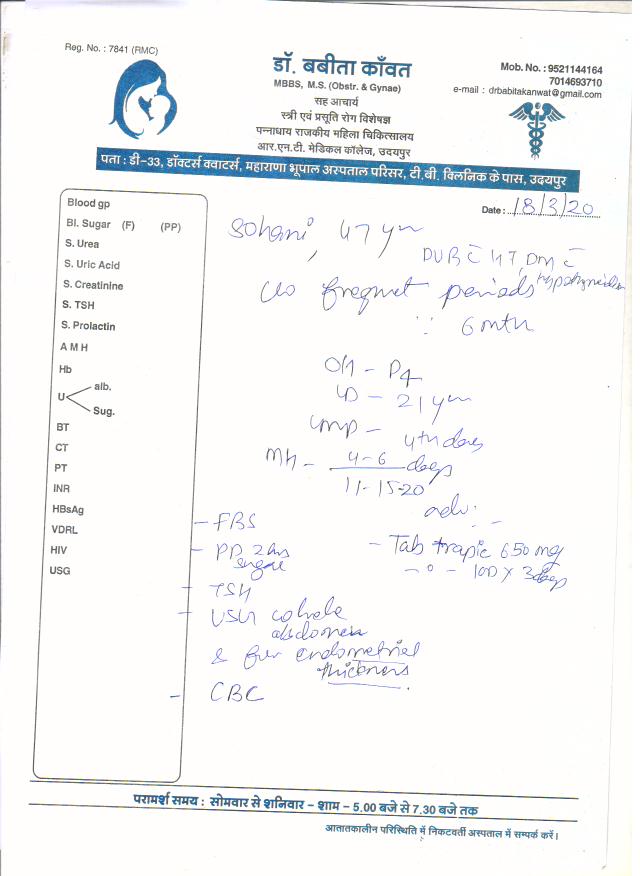 Reg. No. : 7841 (RMC)
डॉ. बबीता काँवत
MBBS, M.S. (Obstr. & Gynae)
सह आचार्य
स्त्री एवं प्रसूति रोग विशेषज्ञ
पन्नाधाय राजकीय महिला चिकित्सालय
आर.एन.टी. मेडिकल कॉलेज, उदयपुर
Mob. No. : 9521144164
7014693710
e-mail : drbabitakanwat@gmail.com
पता : डी-33, डॉक्टर्स क्वाटर्स, महाराणा भूपाल अस्पताल परिसर, टी.बी. क्लिनिक के पास, उदयपुर
Date : 18/3/20
Blood gp
Bl. Sugar (F) (PP)
S. Urea
S. Uric Acid
S. Creatinine
S. TSH
S. Prolactin
A M H
Hb
U alb.
Sug.
BT
CT
PT
INR
HBsAg
VDRL
HIV
USG
Sohani, 47 yrs
HT, DM
c/o frequent periods
6 mth
O/H - P4
LD - 21 yrs
LMP - 4th day
MH - 4-6 days
11-15-20
adv:
- FBS
- PP 2hrs sugar
- TSH
- USG whole
abdomen
& for endometrial
thickness
- CBC
- Tab trapic 650 mg
3 days
परामर्श समय : सोमवार से शनिवार – शाम – 5.00 बजे से 7.30 बजे तक
आतातकालीन परिस्थिति में निकटवर्ती अस्पताल में सम्पर्क करें।